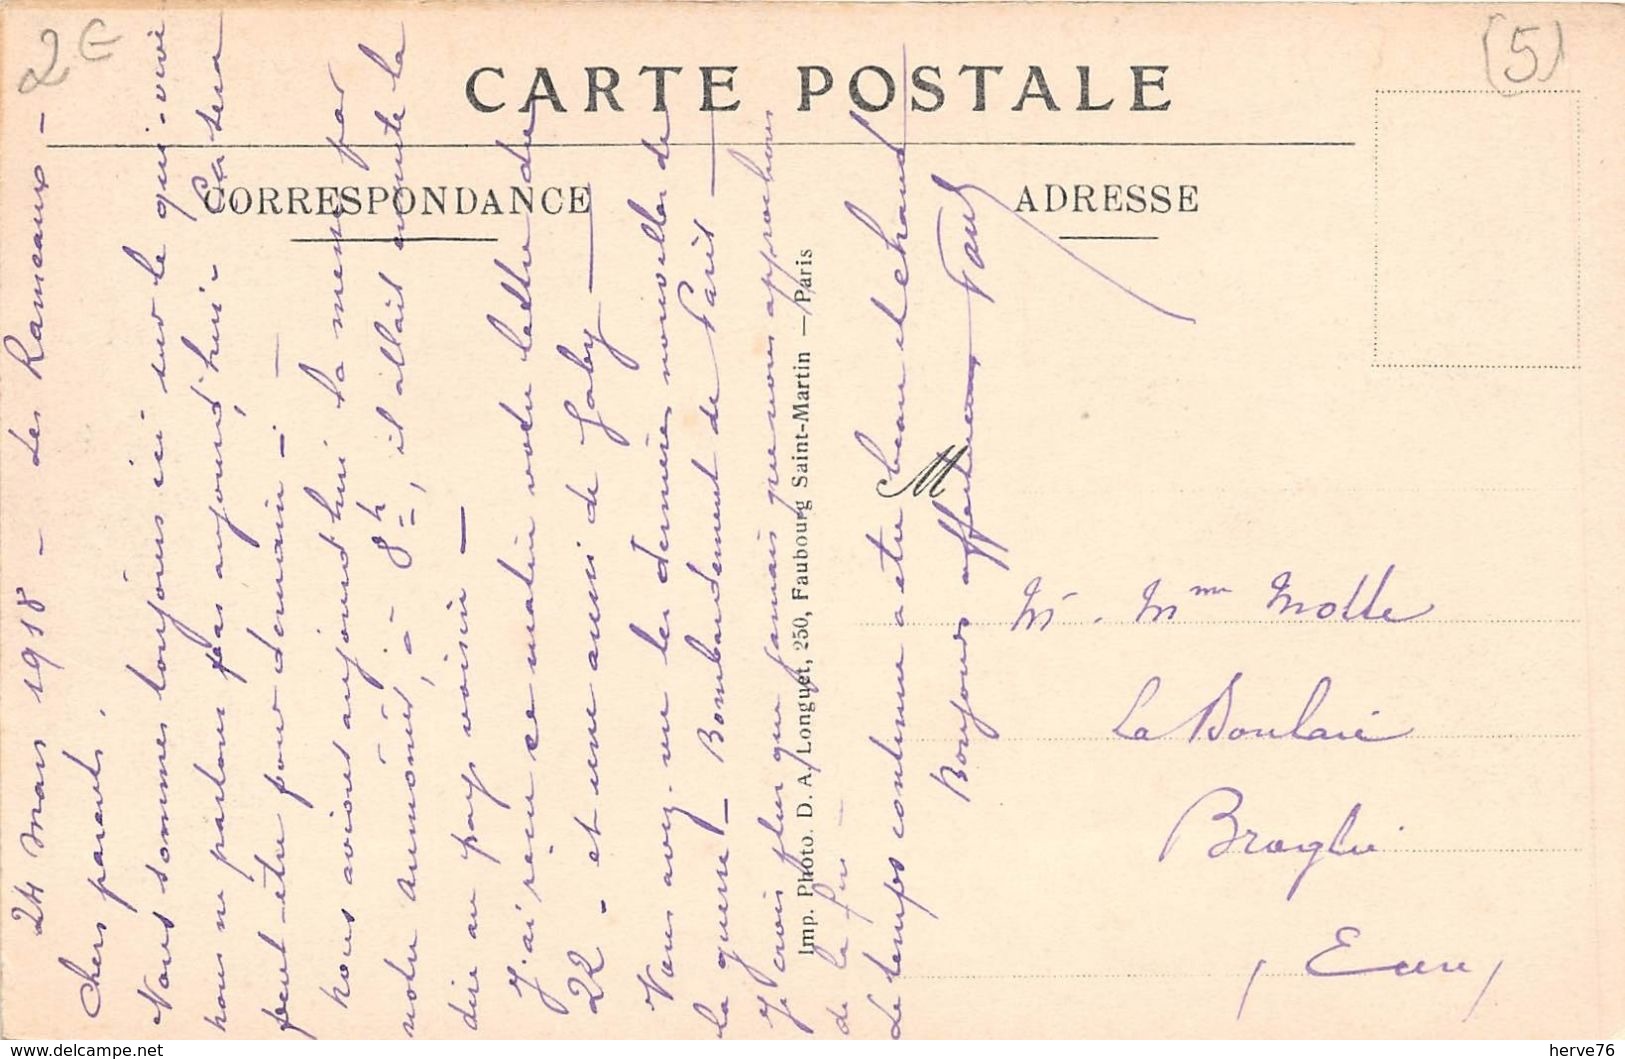 2 €
(5)
CARTE POSTALE
CORRESPONDANCE
ADRESSE
24 Mars 1918 - Les Rameaux -
Chers parents,
Nous sommes toujours ici sur le qui-vive
nous ne partons pas aujourd'hui - Ca sera
peut-être pour demain - -
Nous avions aujourd'hui la messe par
notre aumônier, à 8h, il allait ensuite la
dire au pays voisin -
J'ai reçu ce matin votre lettre du
22 - et une aussi de Gaby -
Vous avez vu les dernières nouvelles de
la guerre - Bombardement de Paris -
Je crois plus que jamais que nous approchons
de la fin -
Le temps continue à être beau et chaud
Bonjours affectueux Paul
Imp. Photo. D. A. Longuet, 250, Faubourg Saint-Martin — Paris
M
M. Mme Motte
La Boulaie
Broglie
Eure
www.delcampe.net
herve76